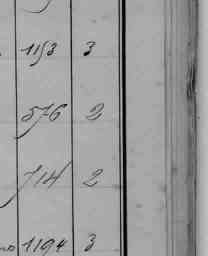 1153 3
576 2
714 2
1194 3